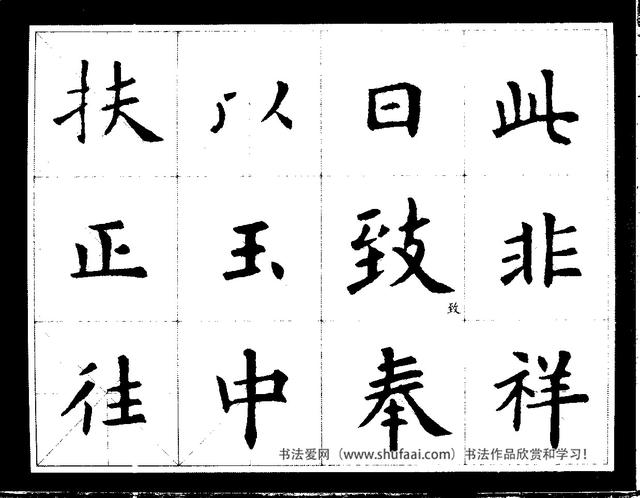 此非祥
日致奉
致
以玉中
扶正往
书法爱网（www.shufaai.com）书法作品欣赏和学习！